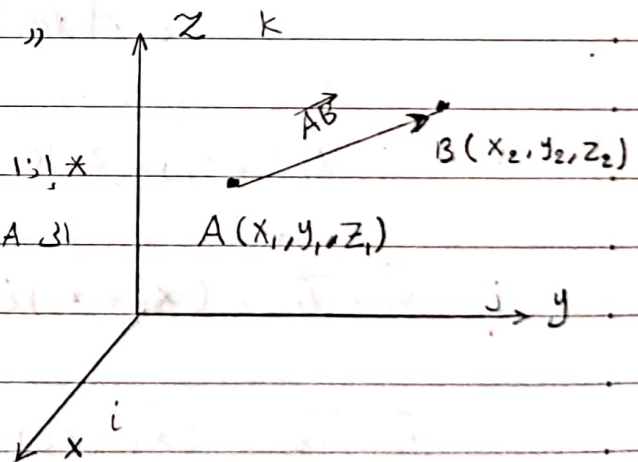 Z K
AB
B (x₂, y₂, z₂)
* إذا
A (x₁, y₁, z₁)
A
j y
i
x